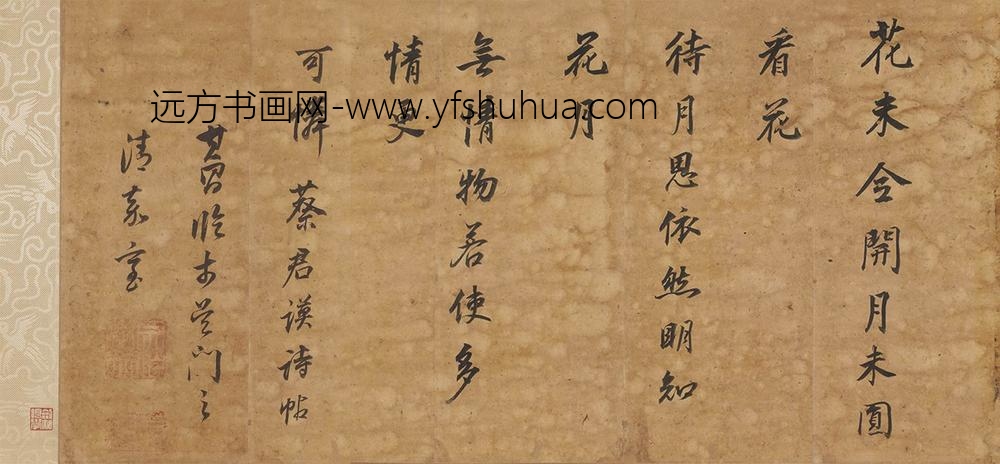 花未全開月未圓
看花
待月思依然明知
花月
無情物若使多
情更
可憐 蔡君謨詩帖
其昌臨於吳門之
清嘉
远方书画网-www.yfshuhua.com